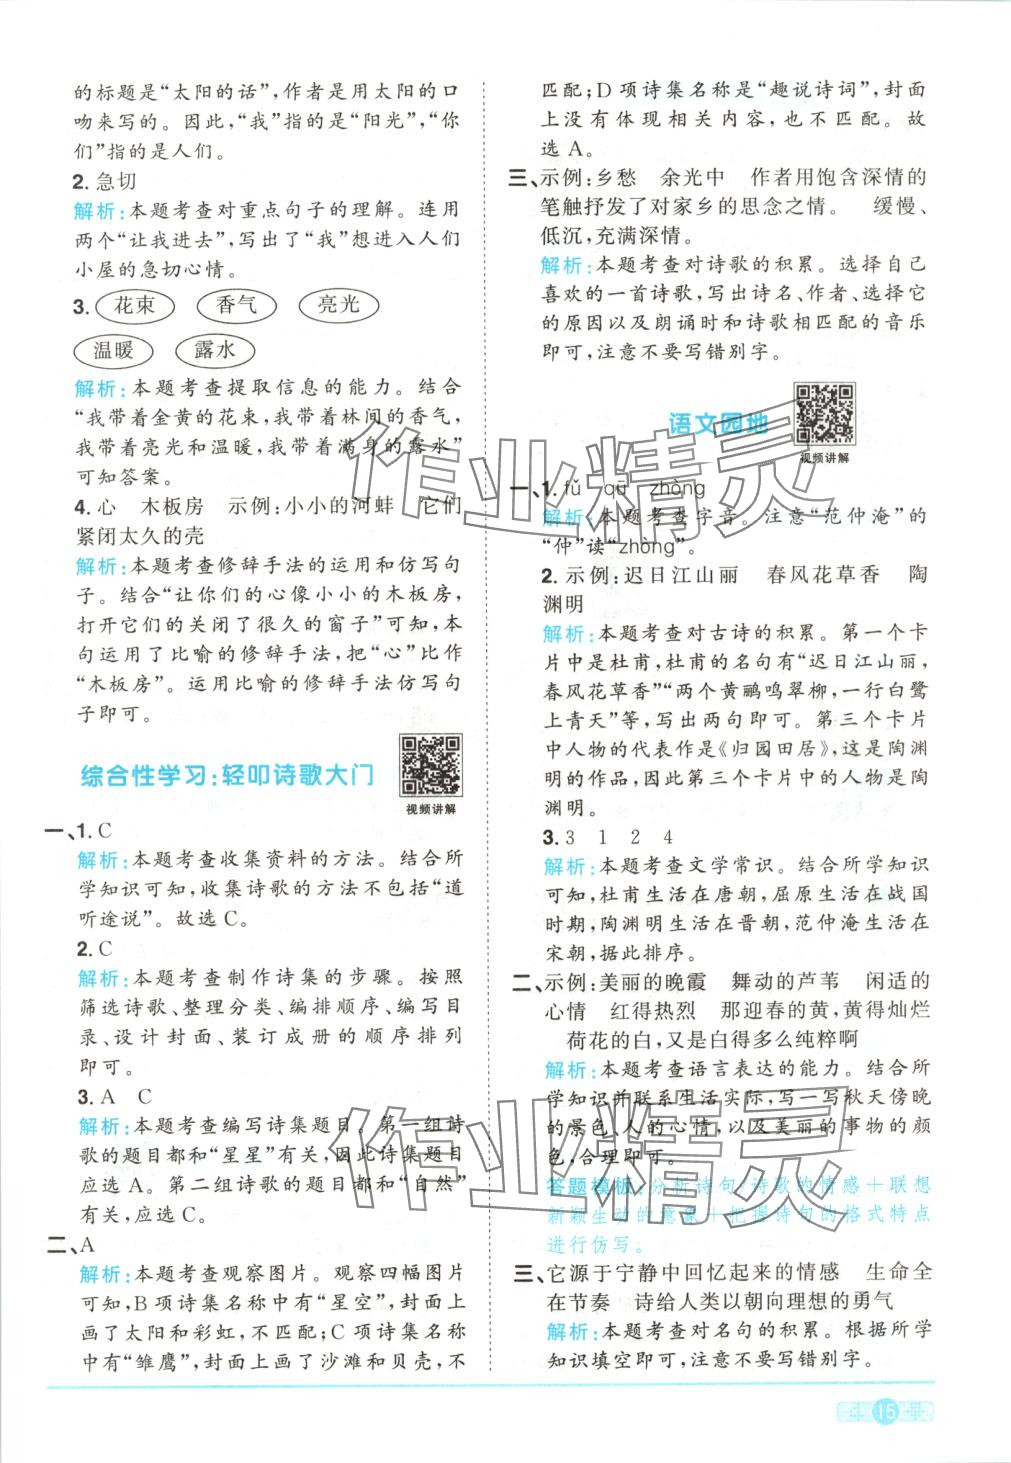 的标题是“太阳的话”,作者是用太阳的口
吻来写的。因此,“我”指的是“阳光”,“你
们”指的是人们。
2. 急切
解析:本题考查对重点句子的理解。连用
两个“让我进去”,写出了“我”想进入人们
小屋的急切心情。
3. 花束 香气 亮光
温暖 露水
解析:本题考查提取信息的能力。结合
“我带着金黄的花束,我带着林间的香气,
我带着亮光和温暖,我带着满身的露水”
可知答案。
4. 心 木板房 示例:小小的河蚌 它们
紧闭太久的壳
解析:本题考查修辞手法的运用和仿写句
子。结合“让你们的心像小小的木板房,
打开它们的关闭了很久的窗子”可知,本
句运用了比喻的修辞手法,把“心”比作
“木板房”。运用比喻的修辞手法仿写句
子即可。
综合性学习:轻叩诗歌大门
视频讲解
一、1. C
解析:本题考查收集资料的方法。结合所
学知识可知,收集诗歌的方法不包括“道
听途说”。故选 C。
2. C
解析:本题考查制作诗集的步骤。按照
筛选诗歌、整理分类、编排顺序、编写目
录、设计封面、装订成册的顺序排列
即可。
3. A C
解析:本题考查编写诗集题目。第一组诗
歌的题目都和“星星”有关,因此诗集题目
应选 A。第二组诗歌的题目都和“自然”
有关,应选 C。
二、A
解析:本题考查观察图片。观察四幅图片
可知,B 项诗集名称中有“星空”,封面上
画了太阳和彩虹,不匹配;C 项诗集名称
中有“雏鹰”,封面上画了沙滩和贝壳,不
匹配;D 项诗集名称是“趣说诗词”,封面
上没有体现相关内容,也不匹配。故
选 A。
三、示例:乡愁 余光中 作者用饱含深情的
笔触抒发了对家乡的思念之情。 缓慢、
低沉,充满深情。
解析:本题考查对诗歌的积累。选择自己
喜欢的一首诗歌,写出诗名、作者、选择它
的原因以及朗诵时和诗歌相匹配的音乐
即可,注意不要写错别字。
语文园地
视频讲解
一、1. fǔ qū zhòng
解析:本题考查字音。注意“范仲淹”的
“仲”读“zhòng”。
2. 示例:迟日江山丽 春风花草香 陶
渊明
解析:本题考查对古诗的积累。第一个卡
片中是杜甫,杜甫的名句有“迟日江山丽,
春风花草香”“两个黄鹂鸣翠柳,一行白鹭
上青天”等,写出两句即可。第三个卡片
中人物的代表作是《归园田居》,这是陶渊
明的作品,因此第三个卡片中的人物是陶
渊明。
3. 3 1 2 4
解析:本题考查文学常识。结合所学知识
可知,杜甫生活在唐朝,屈原生活在战国
时期,陶渊明生活在晋朝,范仲淹生活在
宋朝,据此排序。
二、示例:美丽的晚霞 舞动的芦苇 闲适的
心情 红得热烈 那迎春的黄,黄得灿烂
荷花的白,又是白得多么纯粹啊
解析:本题考查语言表达的能力。结合所
学知识并联系生活实际,写一写秋天傍晚
的景色、人的心情,以及美丽的事物的颜
色,合理即可。
答题模板:分析诗句/诗歌的情感+联想
新颖生动的意象+把握诗句的格式特点
进行仿写。
三、它源于宁静中回忆起来的情感 生命全
在节奏 诗给人类以朝向理想的勇气
解析:本题考查对名句的积累。根据所学
知识填空即可,注意不要写错别字。
15
作业精灵
作业精灵